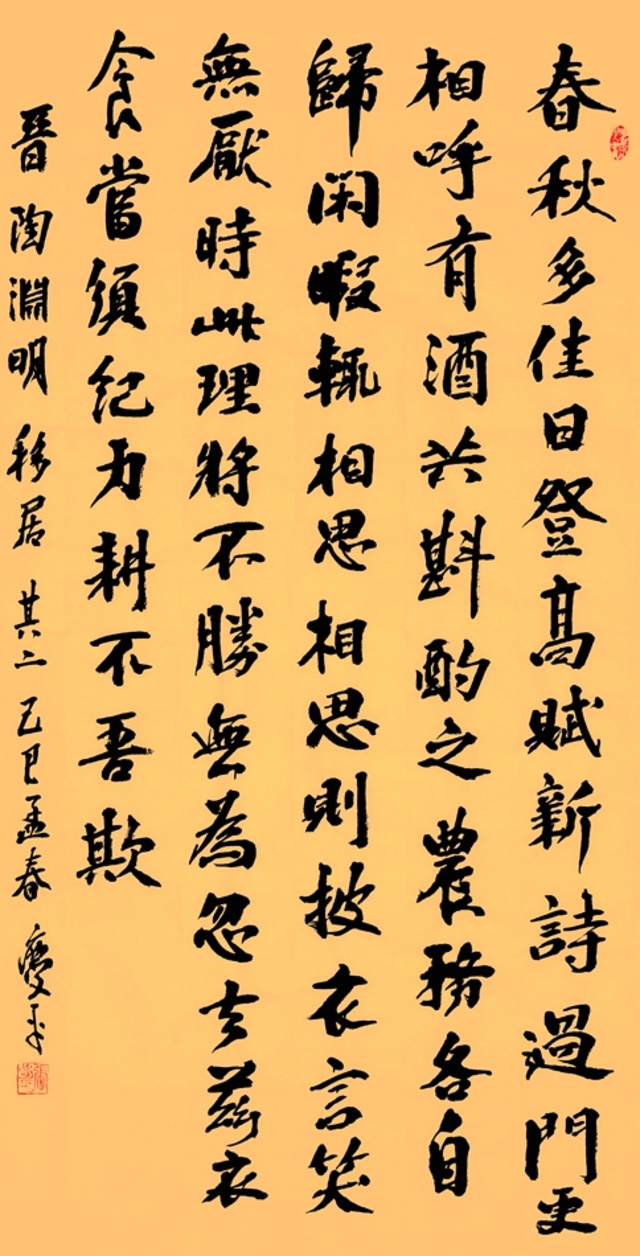 春秋多佳日登高賦新詩過門更
相呼有酒共斟酌之農務各自
歸閑暇輒相思相思則披衣言笑
無厭時此理將不勝無為忽去茲衣
食當須紀力耕不吾欺
晉陶淵明移居其二乙巳孟春